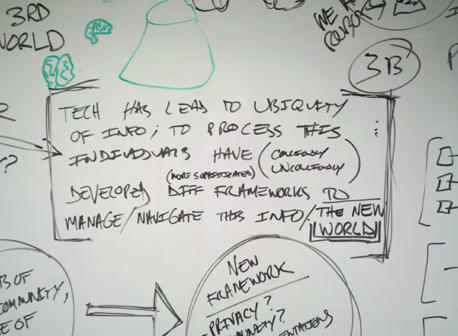 3RD
WORLD
WE
3B
TECH HAS LEAD TO UBIQUITY
OF INFO; TO PROCESS THIS
INDIVIDUALS HAVE (CONCIOUSLY
UNCONCIOUSLY)
(MORE SOPHISTICATED)
DEVELOPED DIFF FRAMEWORKS TO
MANAGE/NAVIGATE THIS INFO/THE NEW
WORLD
OF
COMMUNITY,
OF
NEW
FRAMEWORK
PRIVACY?